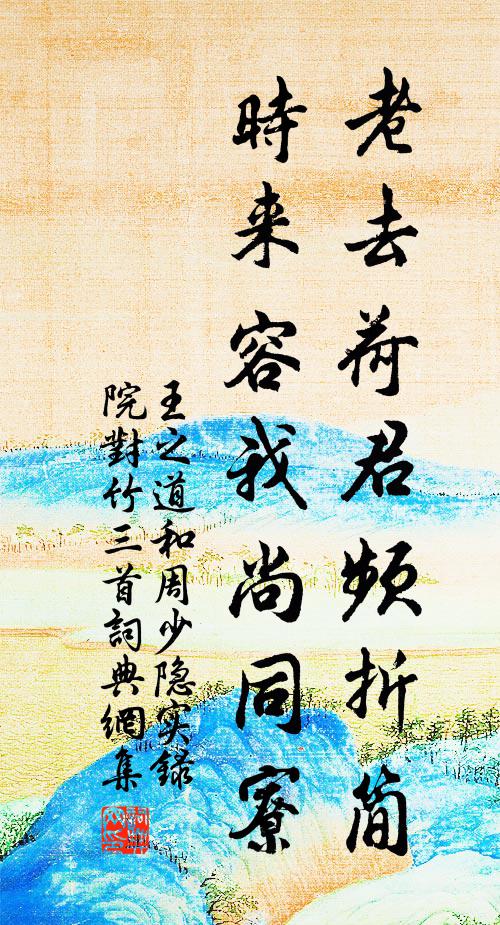 老去荷君频折简
時来容我尚同寮
王之道和周少隐实録
院對竹三首詞典網集